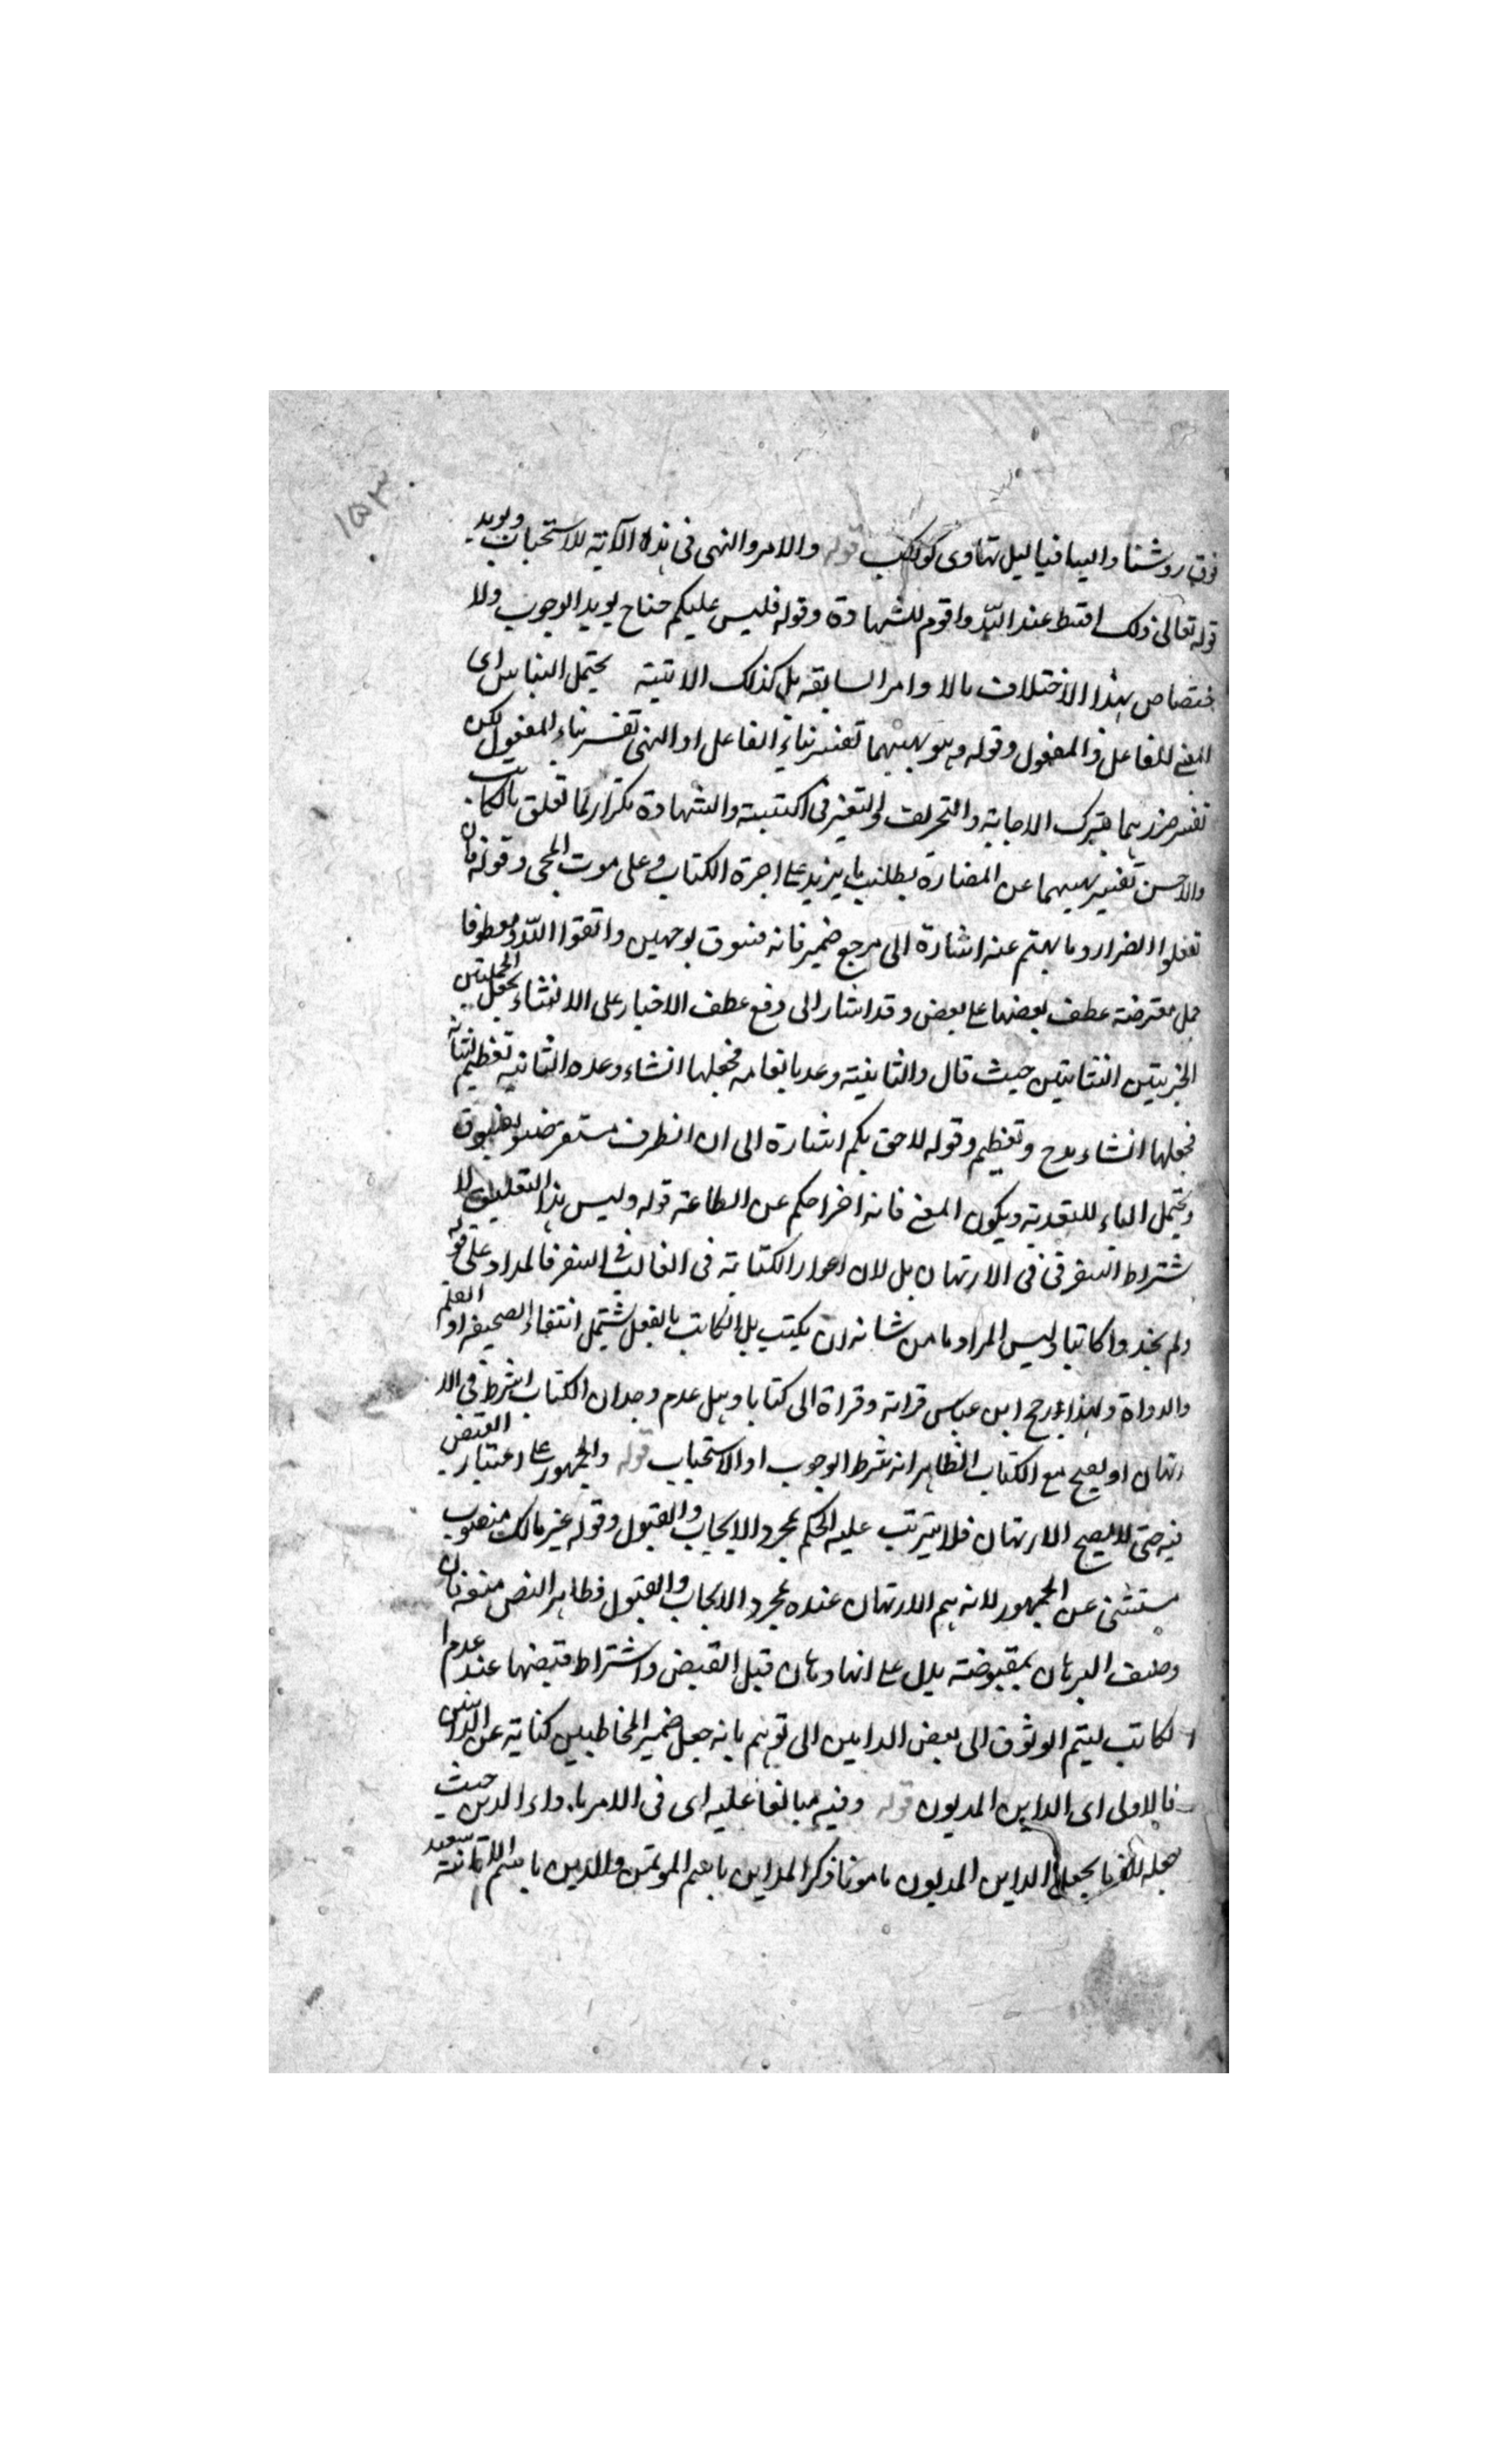 ١٥٣
فوق روسنا واليبافنا ليل تهاوى كواكبه قوله والامر والنهى فى هذه الآية للاستحباب ويويد
قوله تعالى ذلك اقسط عند الله واقوم للشهادة وقوله فليس عليكم جناح يويد الوجوب ولا
ختصاص بهذا الاختلاف بالاوامر السابقه بل كذلك الاتية يحتمل البنا اى
المبنى للفاعل والمفعول وقوله وهو نهيهما تفسير بناء الفاعل او النهى تفسير بناء المفعول لكن
تفسير ضررهما بترك الاجابة والتحريف والتغير فى الكتبة والشهادة تكرار لما تعلق بالكاتب
والاحسن تفسير نهيهما عن المضارة بطلب ما يزيد على اجرة الكتاب وعلى موت المجى وقوله فان
تفعلوا الضرار وما نهيتم عنه اشارة الى مرجع ضمير فانه فسوق بوجهين واتقوا الله معطوفا
جمل معترضة عطف بعضها على بعض وقد اشار الى دفع عطف الاخبار على الانشاء بجعل الجملتين
الخبريتين انشائيتين حيث قال والثانية وعد بانعامه فجعلها انشاء وعده الثانية تعظيم لشانه
فجعلها انشاء مدح وتعظيم وقوله لاحق بكم اشارة الى ان الظرف مستقر صفة لفسوق
ويحتمل الباء للتعدية ويكون المعنى فانه اخراجكم عن الطاعة قوله وليس هذا التعليق لا
شتراط السفر فى الارتهان بل لان اعواز الكتابة فى الغالب فى السفر فالمدار على قوله
ولم تجدوا كاتبا وليس المراد ما من شانه ان يكتب بل الكاتب بالفعل يشتمل انتفاء الصحيفه او القلم
والدواة ولهذا رجح ابن عباس قراته وقراة ابى كتابا وهل عدم وجدان الكتاب شرط فى الا
رتهان او يصح مع الكتاب الظاهر انه شرط الوجوب او الاستحباب قوله والجمهور على اعتبار القبض
فيه حتى لا يصح الارتهان فلا يترتب عليه الحكم بمجرد الايجاب والقبول وقوله غير مالك منصوب
مستثنى عن الجمهور لانه يتم الارتهان عنده بمجرد الايجاب والقبول فظاهر النص معه فان
وصف الرهان بمقبوضة يدل على انها رهان قبل القبض واشتراط قبضها عند عدم ا
لكاتب ليتم الوثوق الى بعض الداينين الى توهم بانه جعل ضمير المخاطبين كناية عن الداينين
فالاولى اى الداين المديون قوله وفيه مبالغا عليه اى فى الامر باداء الدين حيث
جعله بجعل الداين المديون مامونا ذكر المداين باسم الموتمن والدين باسم الامانة